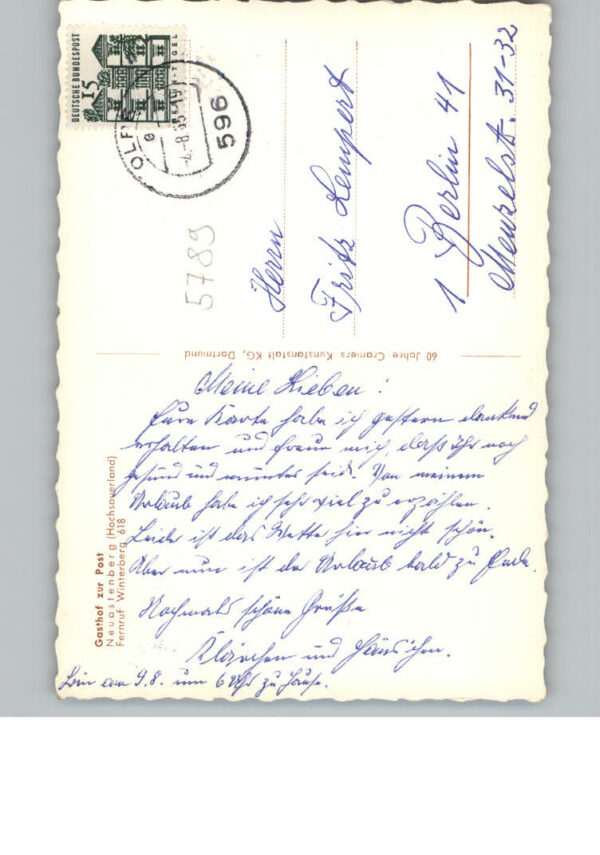 DEUTSCHE BUNDESPOST
15
TEGEL
596
5789
Herrn
Fritz Lempert
1 Berlin 41
Menzelst. 31-32
60 Jahre Cramers Kunstanstalt KG, Dortmund
Gasthof zur Post
Neuastenberg (Hochsauerland)
Fernruf Winterberg 618
Meine Lieben!
Eure Karte habe ich gestern dankend
erhalten und freue mich, daß Ihr noch
gesund und munter seid. Von meinem
Urlaub habe ich sehr viel zu erzählen.
Leider ist das Wetter hier nicht schön.
Aber nun ist der Urlaub bald zu Ende.
Nochmals schöne Grüße
Klärchen und Hänschen.
Bin am 9.8. um 6 Uhr zu Hause.